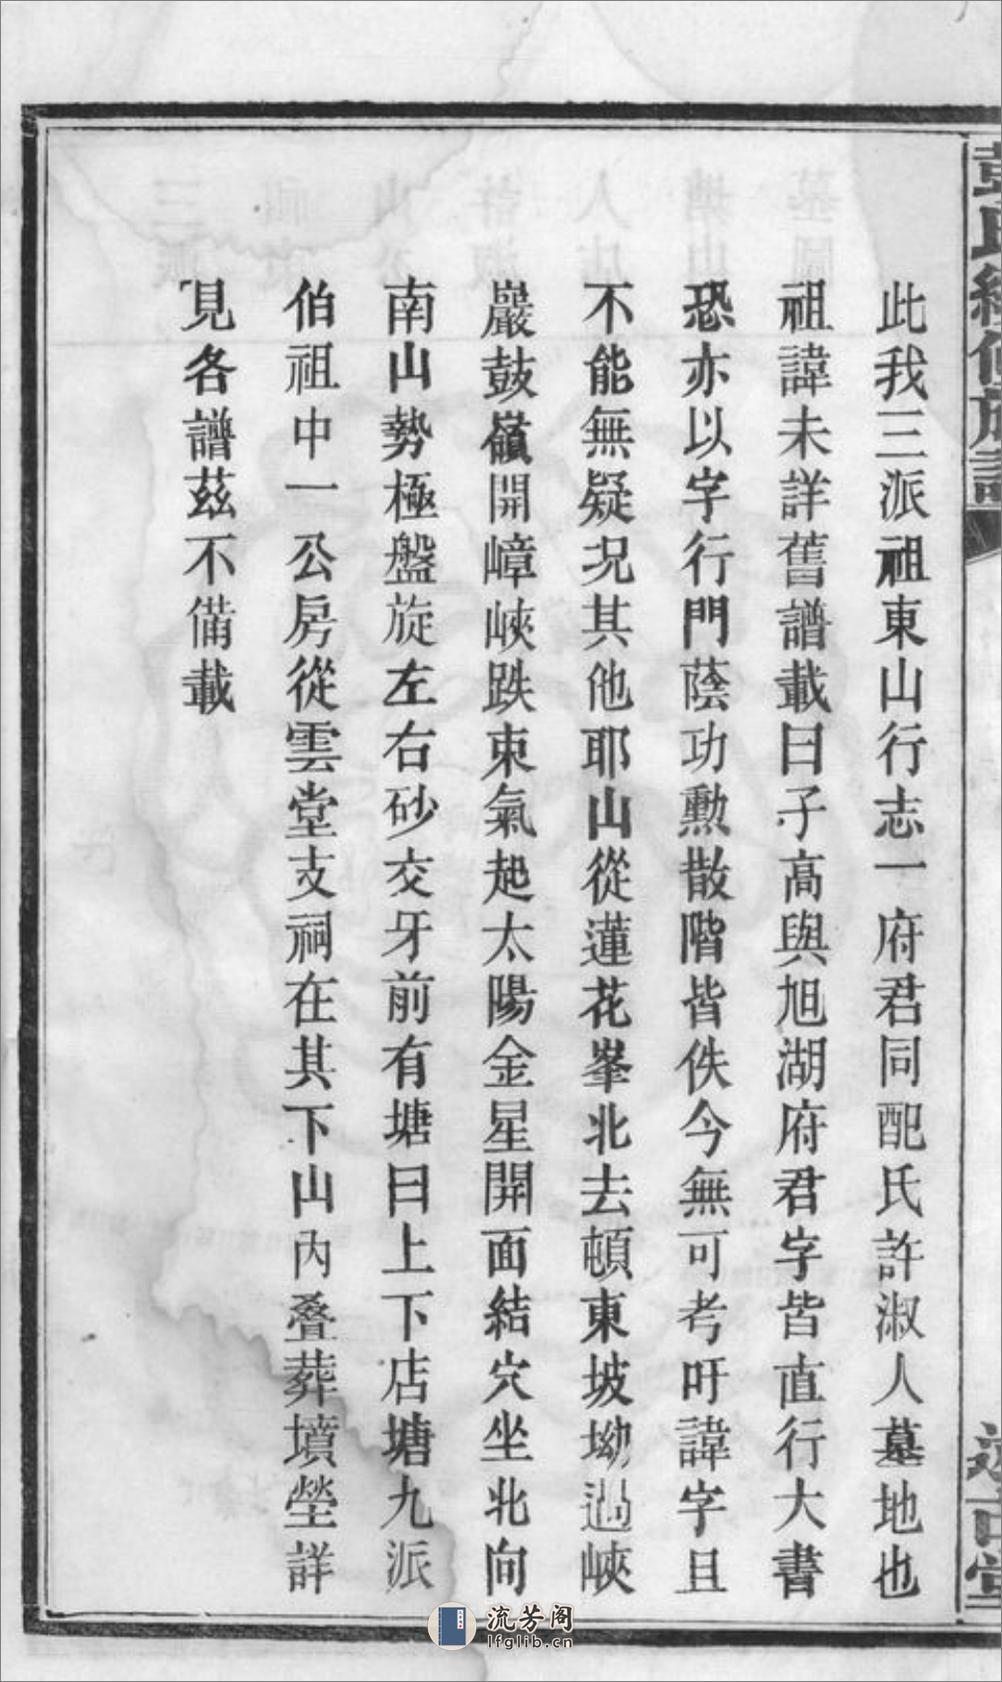 彭氏續修族譜
述古堂
此我三派祖東山行志一府君同配氏許淑人墓地也
祖諱未詳舊譜載曰子高與旭湖府君字皆直行大書
恐亦以字行門蔭功勲散階皆佚今無可考吁諱字且
不能無疑況其他耶山從蓮花峯北去頓東坡坳過峽
巖鼓嶺開嶂峽跌束氣起太陽金星開面結穴坐北向
南山勢極盤旋左右砂交牙前有塘曰上下店塘九派
伯祖中一公房從雲堂支祠在其下山內叠葬墳塋詳
見各譜茲不備載
流芳阁
lfglib.cn